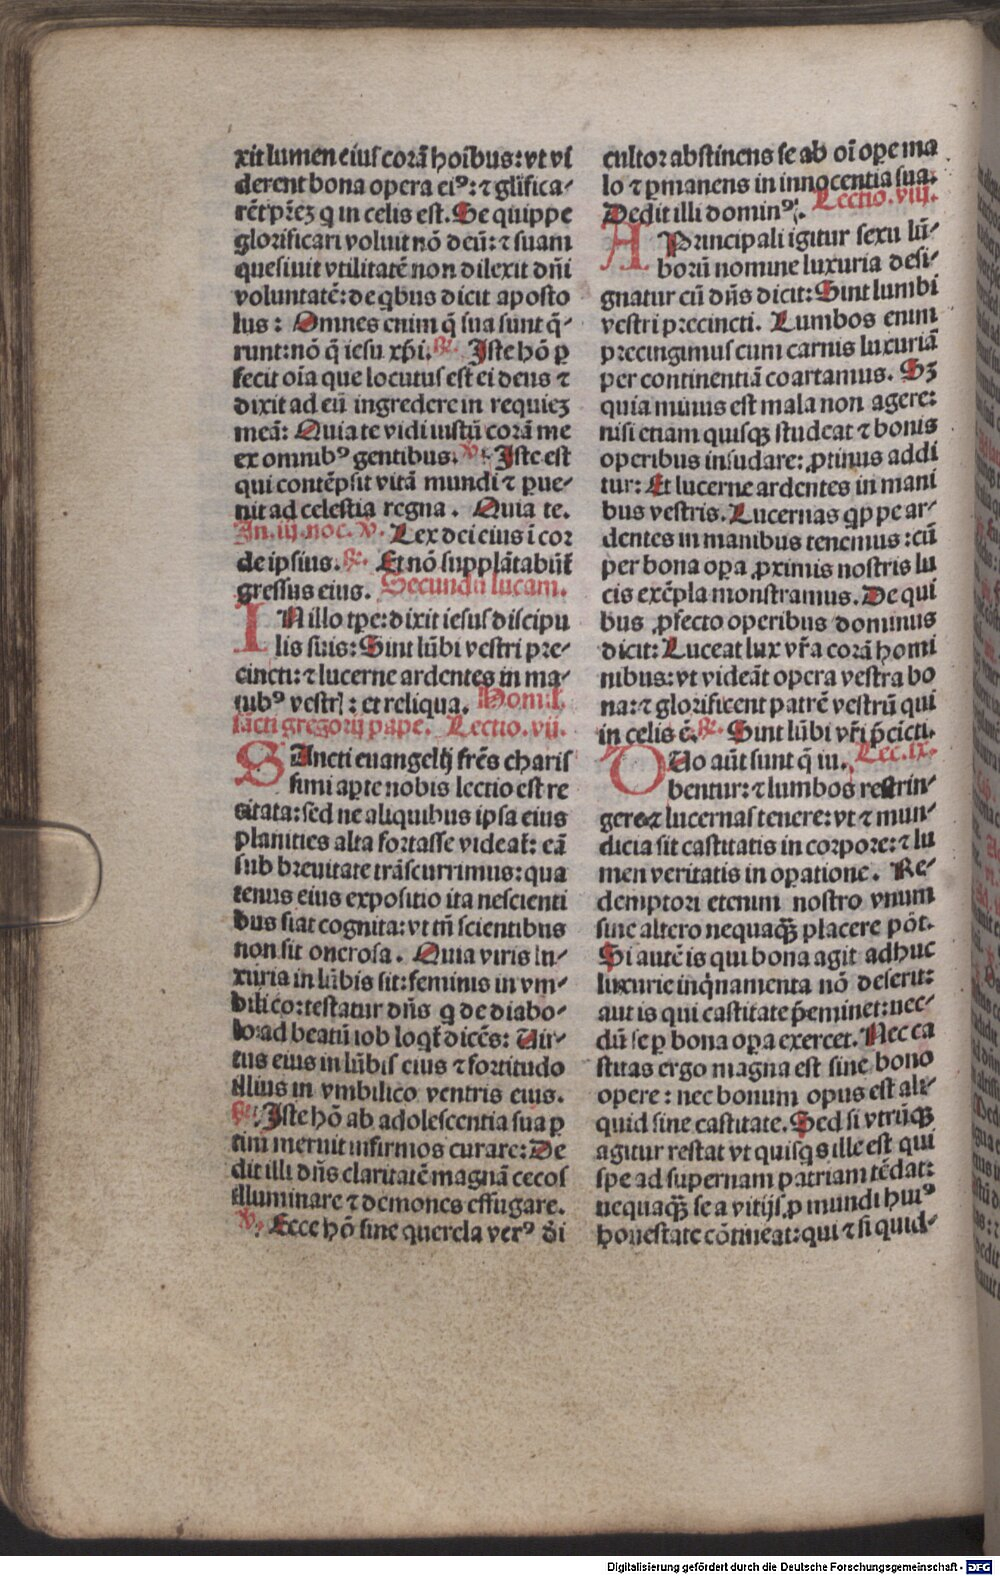 xit lumen eius corā hoībus: vt vi
derent bona opera ei⁹: ⁊ glīfica-
rēt pr̄eꝫ q̄ in celis est. Se quippe
glorificari voluit nō deū: ⁊ suam
quesiuit vtilitatē non dilexit dn̄i
voluntatē: de qbus dicit aposto
lus: Omnes enim q̄ sua sunt q̄-
runt: nō q̄ iesu xp̄i. ℟. Iste hō ꝑ
fecit oīa que locutus est ei deus ⁊
dixit ad eū ingredere in requieꝫ
meā: Quia te vidi iustū corā me
ex omnib⁹ gentibus. ℣. Iste est
qui contēpsit vitā mundi ⁊ ꝑue-
nit ad celestia regna. Quia te.
In. iij. noc. ℣. Lex dei eius ī cor
de ipsius. ℟. Et nō supplātabūt̄
gressus eius. Secundū lucam.
IN illo tp̄e: dixit iesus discipu
lis suis: Sint lūbi vestri pre-
cincti: ⁊ lucerne ardentes in ma-
nib⁹ vestrꝭ: et reliqua. Homil.
sācti gregorij pape. Lectio. vii.
SAncti euangelij frēs charis
simi aꝑte nobis lectio est re
citata: sed ne aliquibus ipsa eius
planities alta fortasse videat̄: eā
sub breuitate trāscurrimus: qua
tenus eius expositio ita nescienti
bus fiat cognita: vt tn̄ scientibus
non sit onerosa. Quia viris lu-
xuria in lūbis sit: feminis in vm-
bilico: testatur dn̄s q̄ de diabo-
lo: ad beatū iob loqt̄ dicēs: Uir-
tus eius in lūbis eius ⁊ fortitudo
illius in vmbilico ventris eius.
℟. Iste hō ab adolescentia sua ꝑ
tim meruit infirmos curare: De
dit illi dn̄s claritatē magnā cecos
illuminare ⁊ demones effugare.
℣. Ecce hō sine querela ver⁹ di
cultor abstinens se ab oī oꝑe ma
lo ⁊ ꝑmanens in innocentia sua:
Dedit illi domin⁹. Lectio. viii.
A Principali igitur sexu lū-
borū nomine luxuria desi-
gnatur cū dn̄s dicit: Sint lumbi
vestri precincti. Lumbos enim
precingimus cum carnis luxuriā
per continentiā coartamus. Sꝫ
quia minus est mala non agere:
nisi etiam quisqꝫ studeat ⁊ bonis
operibus insudare: ꝓtinus addi
tur: Et lucerne ardentes in mani
bus vestris. Lucernas qp̄pe ar-
dentes in manibus tenemus: cū
per bona oꝑa ꝓximis nostris lu
cis exēpla monstramus. De qui
bus ꝓfecto operibus dominus
dicit: Luceat lux vr̄a corā homi
nibus: vt videāt opera vestra bo
na: ⁊ glorificent patrē vestrū qui
in celis ē. ℟. Sint lūbi vr̄i p̄cīcti.
DUo aūt sunt q̄ iu. Lec. ix.
bentur: ⁊ lumbos restrin-
gere ⁊ lucernas tenere: vt ⁊ mun-
dicia sit castitatis in corpore: ⁊ lu
men veritatis in oꝑatione. Re-
demptori etenim nostro vnum
sine altero nequaqꝫ placere pōt.
Si autē is qui bona agit adhuc
luxurie inqnamenta nō deserit:
aut is qui castitate p̄eminet: nec-
dū se ꝑ bona oꝑa exercet. Nec ca
stitas ergo magna est sine bono
opere: nec bonum opus est ali-
quid sine castitate. Sed si vtrūqꝫ
agitur restat vt quisqs ille est qui
spe ad supernam patriam tēdat:
nequaqꝫ se a vitijs ꝓ mundi hui⁹
honestate cōtineat: qui ⁊ si quid-
Digitalisierung gefördert durch die Deutsche Forschungsgemeinschaft - DFG